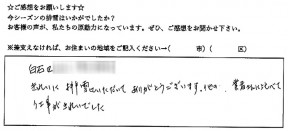 ☆ご感想をお願いします☆
今シーズンの排雪はいかがでしたか？
お客様の声が、私たちの原動力になっています。ぜひ、ご感想をお聞かせ下さい。
※差支えなければ、お住まいの地域をご記入ください→（　　　　市）（　　　　区）
白石区
きれいに排雪していただいてありがとうございます。他の
業者さんにくらべて
工事がきれいでした